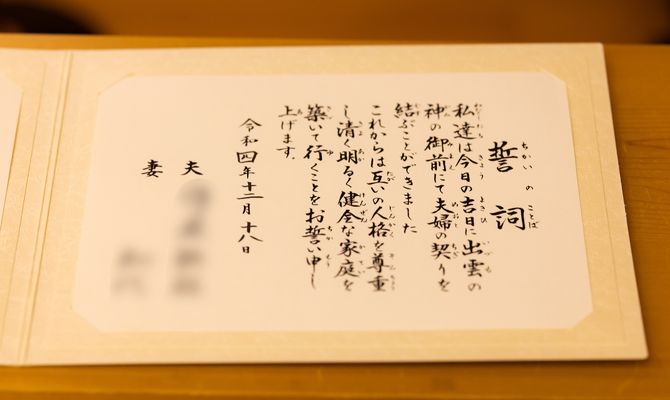 誓詞
ちかいのことば
私達は今日の吉日に出雲の
神の御前にて夫婦の契りを
結ぶことができました
これからは互いの人格を尊重
し清く明るく健全な家庭を
築いて行くことをお誓い申し
上げます。
令和四年十二月十八日
夫
妻